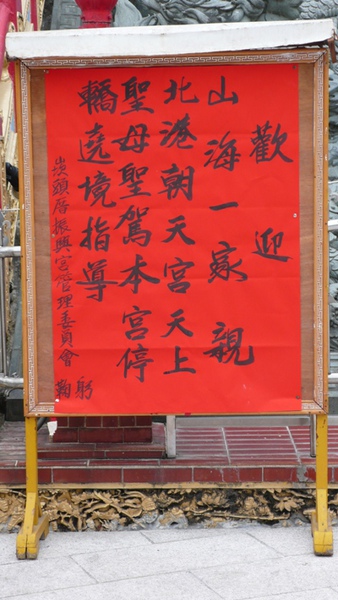 歡迎
山海一家親
北港朝天宮天上
聖母聖駕本宮停
轎遶境指導
崁頭厝振興宮管理委員會
鞠躬